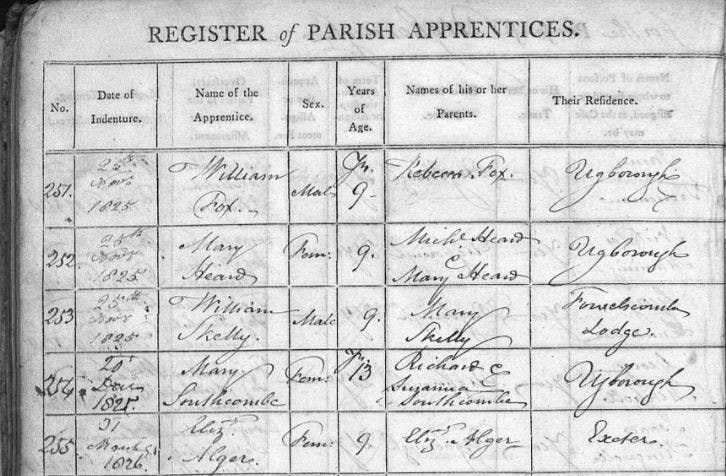 REGISTER of PARISH APPRENTICES.
No.
Date of
Indenture.
Name of the
Apprentice.
Sex.
Years
of
Age.
Names of his or her
Parents.
Their Refidence.
251.
25th
Novr
1825
William
Fox.
Male
Yrs.
9
Rebecca Fox.
Ugborough
252
25th
Novr
1825
Mary
Heard
Fem:
9.
Michl Heard
&
Mary Heard
Ugborough
253
25th
Novr
1825
William
Skelly.
Male
9.
Mary
Skelly
Fowelscombe
Lodge.
254
20th
1825.
Mary
Southcombe
Fem:
Yrs.
13
Richard &
Susanna
Southcombe
Ugborough
255
31
March
1826
Elizth
Alger.
Fem:
9
Elizth Alger
Exeter.